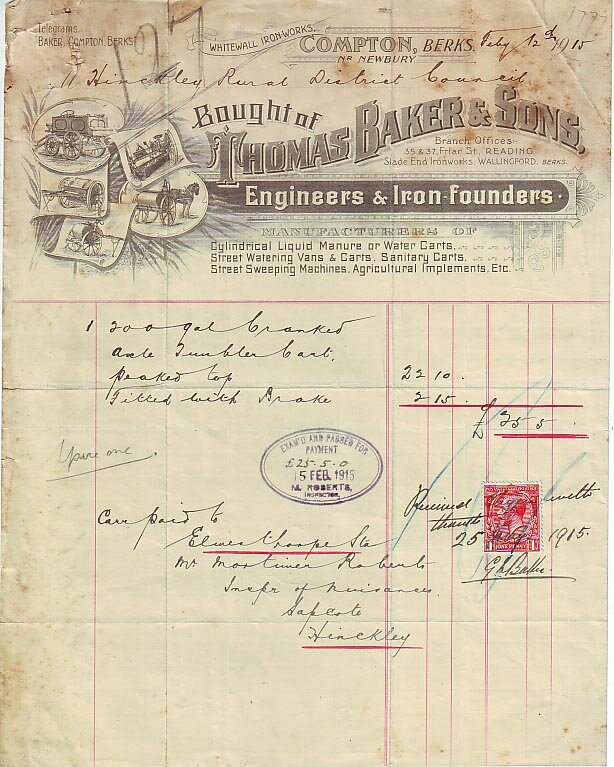 Telegrams
BAKER, COMPTON, BERKS.
127
177
WHITEWALL IRON-WORKS,
COMPTON, BERKS,
NR NEWBURY.
Feby 12th 1915
Hinckley Rural District Council
Bought of
THOMAS BAKER & SONS,
Branch Offices:
35 & 37, Friar St. READING
Slade End Ironworks, WALLINGFORD, BERKS.
Engineers & Iron-Founders.
MANUFACTURERS OF
Cylindrical Liquid Manure or Water Carts,
Street Watering Vans & Carts, Sanitary Carts,
Street Sweeping Machines, Agricultural Implements, Etc.
1 200 gal Cranked
axle Tumbler Cart.
peaked top 22 10.
Fitted with Brake 2 15.
£ 25 5.
Spare one.
EXAM'D AND PASSED FOR
PAYMENT
£25-5-0
15 FEB. 1915
M. ROBERTS,
INSPECTOR.
Carr paid to
Elmesthorpe Sta
Mr Mortimer Roberts
Inspr of Nuisances.
Sapcote
Hinckley
Received with
thanks
25 1915.
ONE PENNY
Baker